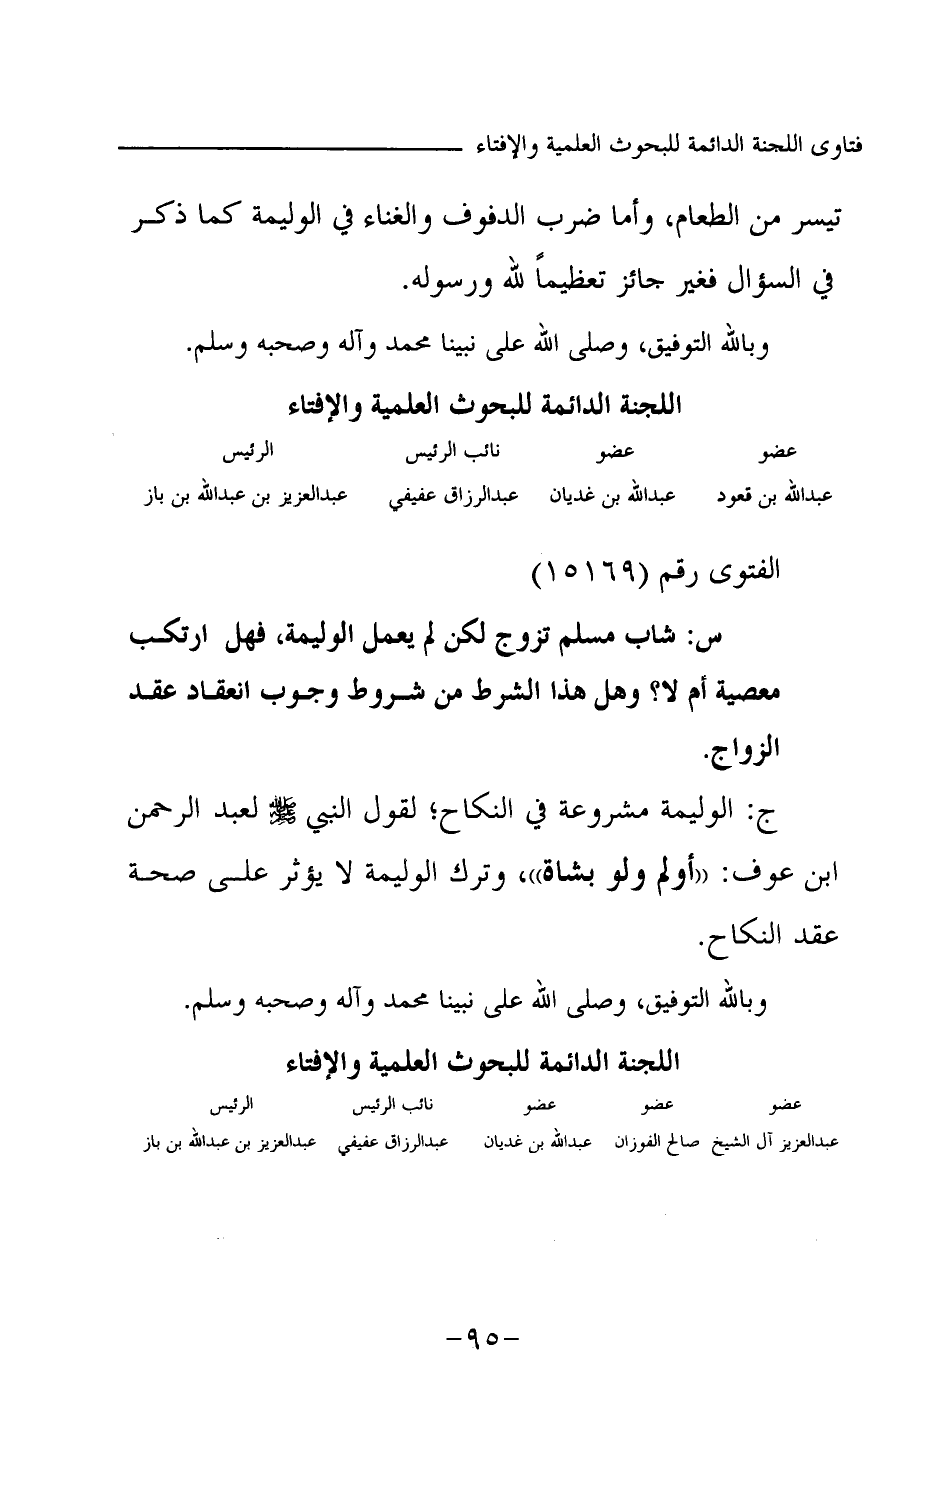 فتاوى اللجنة الدائمة للبحوث العلمية والإفتاء
تيسر من الطعام، وأما ضرب الدفوف والغناء في الوليمة كما ذكر
في السؤال فغير جائز تعظيماً لله ورسوله.
وبالله التوفيق، وصلى الله على نبينا محمد وآله وصحبه وسلم.
اللجنة الدائمة للبحوث العلمية والإفتاء
عضو عضو نائب الرئيس الرئيس
عبدالله بن قعود عبدالله بن غديان عبدالرزاق عفيفي عبدالعزيز بن عبدالله بن باز
الفتوى رقم (١٥١٦٩)
س: شاب مسلم تزوج لكن لم يعمل الوليمة، فهل ارتكب
معصية أم لا؟ وهل هذا الشرط من شروط وجوب انعقاد عقد
الزواج.
ج: الوليمة مشروعة في النكاح؛ لقول النبي ﷺ لعبد الرحمن
ابن عوف: «أولم ولو بشاة»، وترك الوليمة لا يؤثر على صحة
عقد النكاح.
وبالله التوفيق، وصلى الله على نبينا محمد وآله وصحبه وسلم.
اللجنة الدائمة للبحوث العلمية والإفتاء
عضو عضو عضو نائب الرئيس الرئيس
عبدالعزيز آل الشيخ صالح الفوزان عبدالله بن غديان عبدالرزاق عفيفي عبدالعزيز بن عبدالله بن باز
-٩٥-